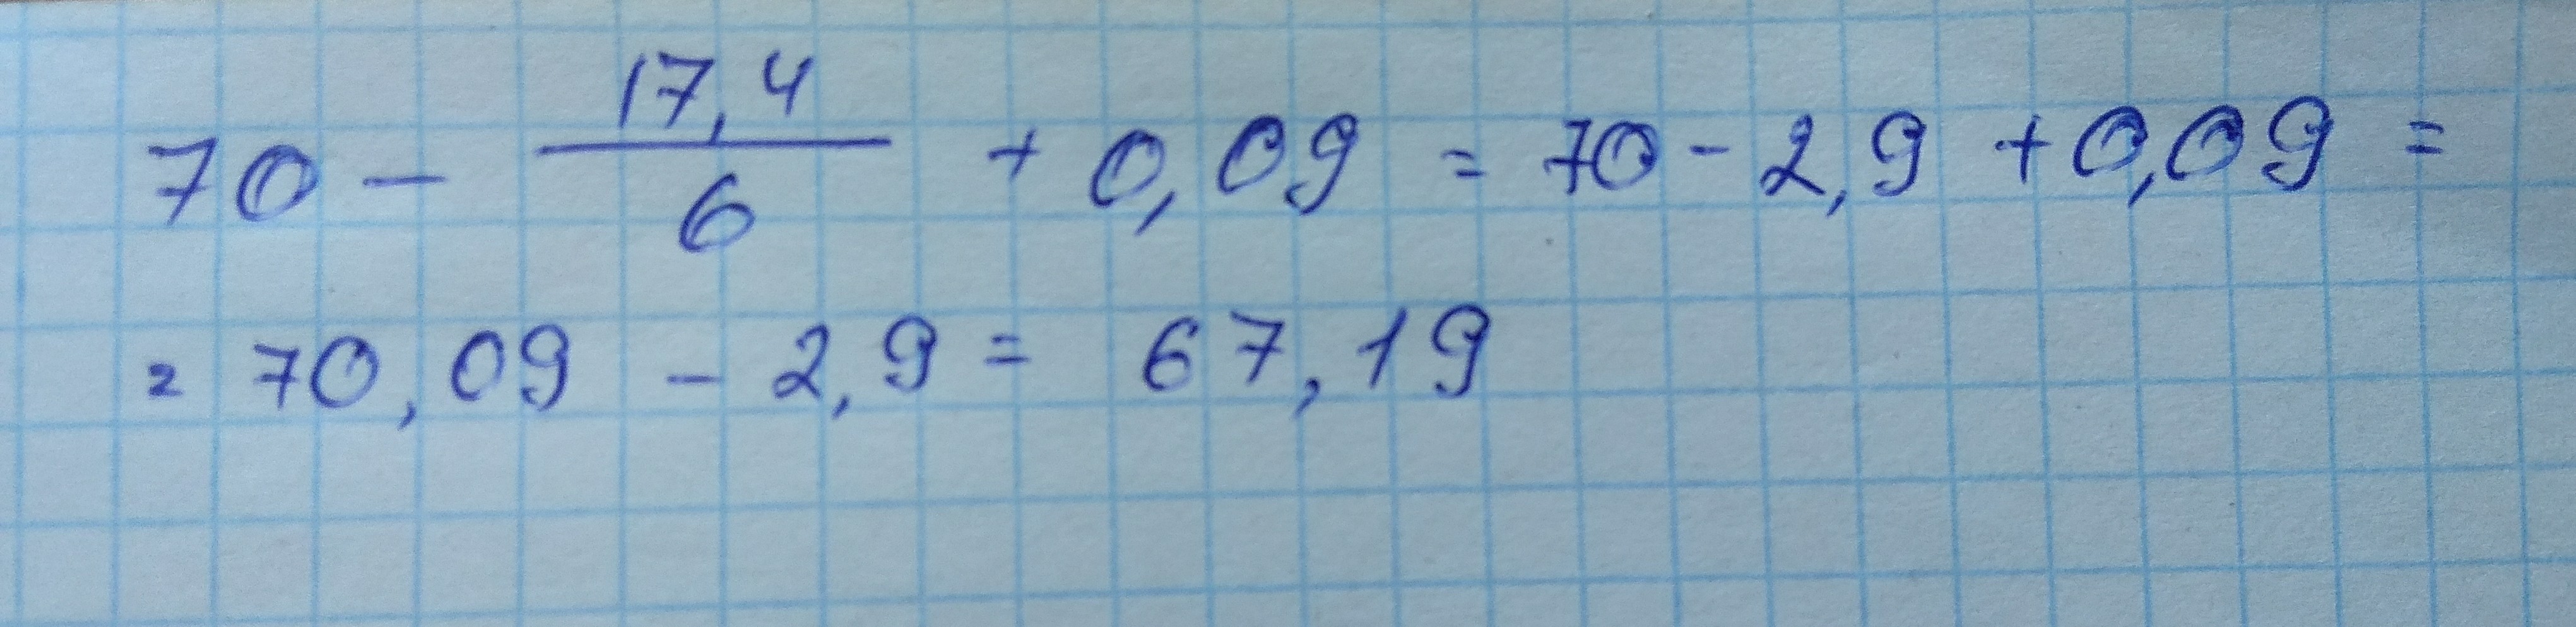 70 - 17,4/6 + 0,09 = 70 - 2,9 + 0,09 =
= 70,09 - 2,9 = 67,19